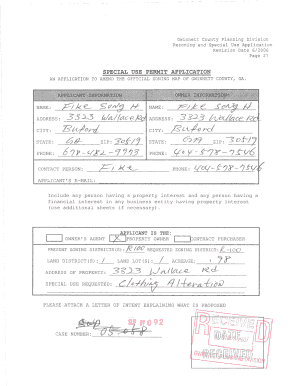 Gwinnett County Planning Division
Rezoning and Special Use Application
Revision Date 6/2006
Page 27
SPECIAL USE PERMIT APPLICATION
AN APPLICATION TO AMEND THE OFFICIAL ZONING MAP OF GWINNETT COUNTY, GA.
APPLICANT INFORMATION OWNER INFORMATION
NAME: Fike Song H NAME: Fike Song H
ADDRESS: 3323 Wallace Rd ADDRESS: 3323 Wallace Rd
CITY: Buford CITY: Buford
STATE: GA ZIP: 30519 STATE: GA ZIP: 30519
PHONE: 678-482-9993 PHONE: 404-578-7546
CONTACT PERSON: Fike PHONE: 404-578-7546
APPLICANT'S E-MAIL:
Include any person having a property interest and any person having a
financial interest in any business entity having property interest
(use additional sheets if necessary).
APPLICANT IS THE:
OWNER'S AGENT X PROPERTY OWNER CONTRACT PURCHASER
PRESENT ZONING DISTRICT(S): R100 REQUESTED ZONING DISTRICT: R-100
LAND DISTRICT(S): 1 LAND LOT(S): 1 ACREAGE: .98
ADDRESS OF PROPERTY: 3323 Wallace Rd
SPECIAL USE REQUESTED: Clothing Alteration
PLEASE ATTACH A LETTER OF INTENT EXPLAINING WHAT IS PROPOSED
CASE NUMBER:
RECEIVED